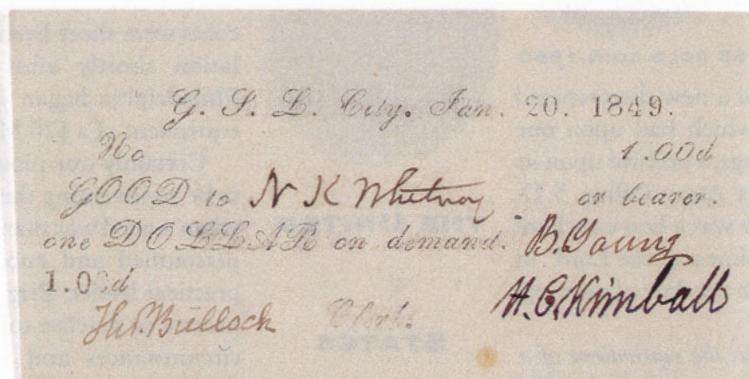 G. S. L. City. Jan. 20. 1849.
No 1.00d
GOOD to N K Whitney or bearer.
one DOLLAR on demand. B. Young
1.00d H. C. Kimball
Tho.s Bullock Clerk.